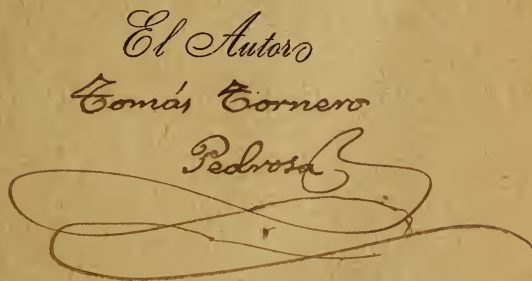 El Autor
Tomás Tornero
Pedrosa